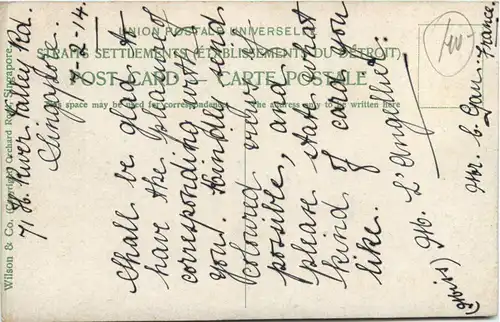 UNION POSTALE UNIVERSELLE
STRAITS SETTLEMENTS (ÉTABLISSEMENTS DU DÉTROIT)
POST CARD — CARTE POSTALE
This space may be used for correspondence
The address only to be written here
Wilson & Co. (Copyright) Orchard Road, Singapore.
River Valley Rd.
Singapore.
-14.
Shall be glad to
have the pleasure of
corresponding with
you. Kindly send
coloured views if
possible, and
please state what
kind of card you
like.
(Miss) M. L'Angellier.
France